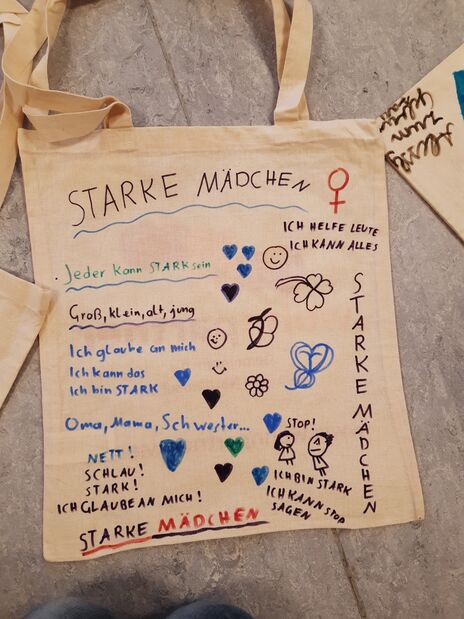 STARKE MÄDCHEN
ICH HELFE LEUTE
ICH KANN ALLES
Jeder kann STARK sein
Groß, klein, alt, jung
Ich glaube an mich
Ich kann das
Ich bin STARK
Oma, Mama, Schwester...
NETT!
SCHLAU!
STARK!
ICH GLAUBE AN MICH!
STOP!
ICH BIN STARK
ICH KANN STOP
SAGEN
STARKE MÄDCHEN
STARKE MÄDCHEN